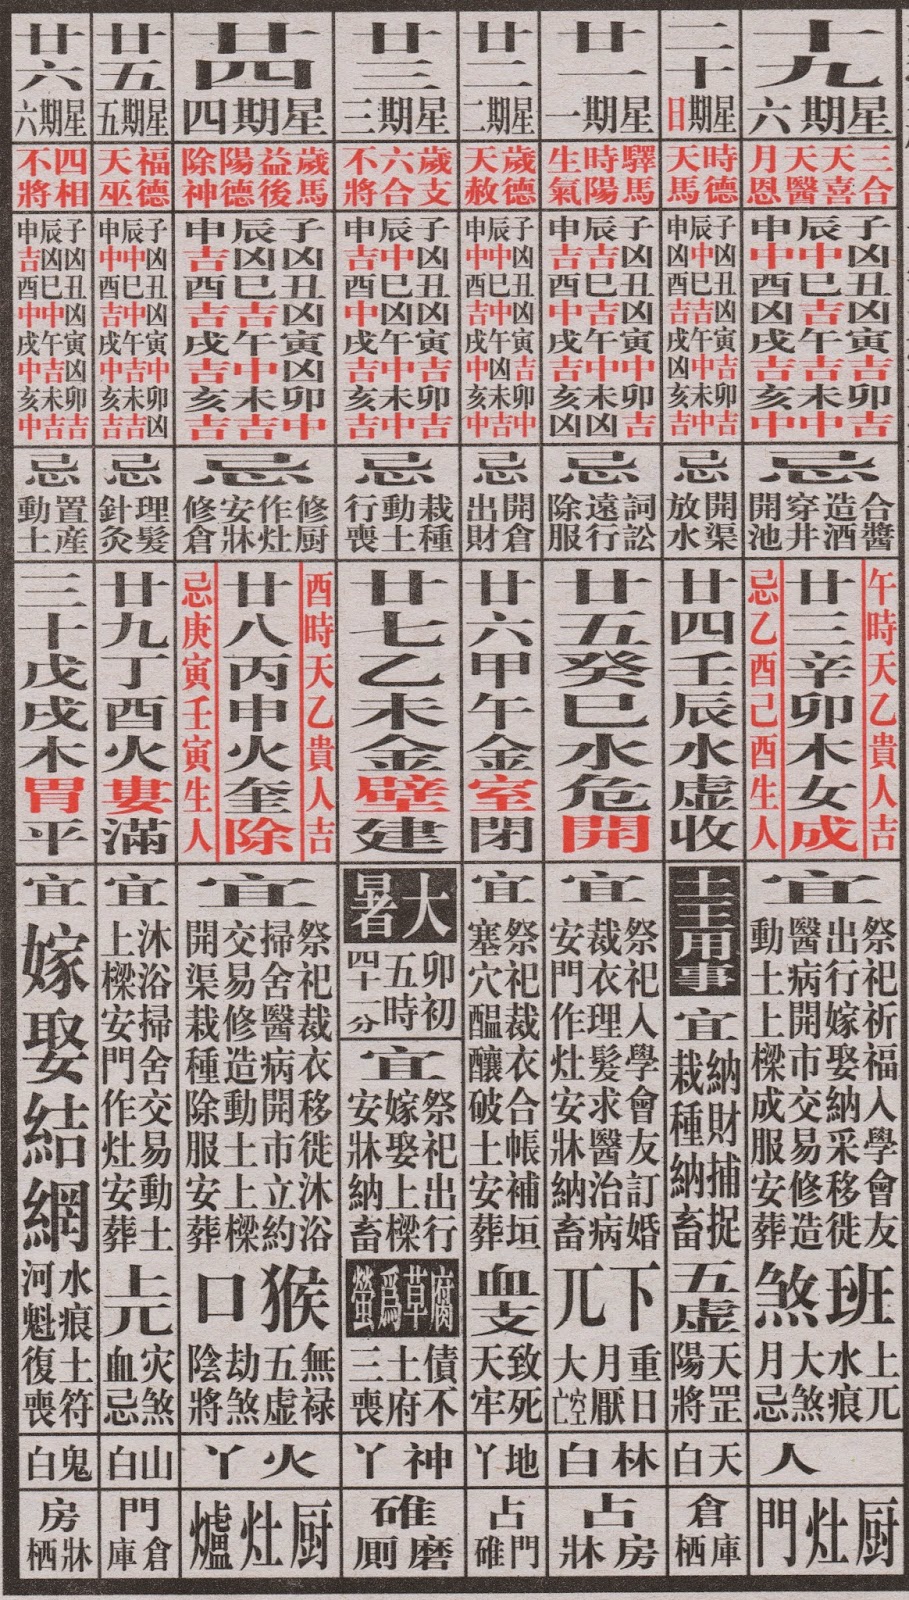 十九
星期六
三合
天喜
天醫
月恩
子凶丑凶寅吉卯吉
辰中巳吉午吉未中
申中酉凶戌吉亥中
忌
合醬
造酒
穿井
開池
午時天乙貴人吉
廿三辛卯木女成
忌乙酉己酉生人
宜
祭祀祈福入學會友
出行嫁娶納采移徙
醫病開市交易修造
動土上樑成服安葬
班煞
上兀
水痕
大煞
月忌
人
厨灶門
二十
星期日
時德
天馬
子凶丑凶寅吉卯中
辰中巳吉午中未中
申凶酉吉戌凶亥中
忌
開渠
放水
廿四壬辰水虛收
土王用事
宜
納財捕捉
栽種納畜
五虛
天罡
陽將
天白
倉庫栖
廿一
星期一
驛馬
時陽
生氣
子凶丑凶寅中卯吉
辰吉巳吉午中未凶
申吉酉中戌吉亥凶
忌
詞訟
遠行
除服
廿五癸巳水危開
宜
祭祀入學會友訂婚
裁衣理髮求醫治病
安門作灶安牀納畜
下兀
重日
月厭
大空亡
林白
占房牀
廿二
星期二
歲德
天赦
子凶丑凶寅吉卯中
辰中巳中午凶未中
申中酉吉戌中亥吉
忌
開倉
出財
廿六甲午金室閉
宜
祭祀裁衣合帳補垣
塞穴醞釀破土安葬
血支
致死
天牢
地丫
占門碓
廿三
星期三
歲支
六合
不將
子凶丑凶寅吉卯吉
辰中巳凶午中未中
申吉酉中戌吉亥吉
忌
栽種
動土
行喪
廿七乙未金壁建
大暑
卯初
五時
四十一分
宜
祭祀出行
嫁娶上樑
安牀納畜
腐草為螢
債不
土府
三喪
神丫
碓磨厠
廿四
星期四
歲馬
益後
陽德
除神
子凶丑凶寅凶卯中
辰凶巳吉午中未吉
申吉酉吉戌吉亥吉
忌
修厨
作灶
安牀
修倉
酉時天乙貴人吉
廿八丙申火奎除
忌庚寅壬寅生人
宜
祭祀裁衣移徙沐浴
掃舍醫病開市立約
交易修造動土上樑
開渠栽種除服安葬
猴口
無祿
五虛
劫煞
陰將
火丫
厨灶爐
廿五
星期五
福德
天巫
子凶丑凶寅中卯凶
辰中巳中午吉未吉
申中酉吉戌中亥吉
忌
理髮
針灸
廿九丁酉火婁滿
宜
沐浴掃舍交易動土
上樑安門作灶安葬
上兀
灾煞
血忌
山白
門倉庫
廿六
星期六
四相
不將
子凶丑凶寅凶卯吉
辰凶巳中午吉未吉
申吉酉中戌中亥中
忌
置産
動土
三十戊戌木胃平
宜
嫁娶結網
水痕土符
河魁復喪
鬼白
房牀栖